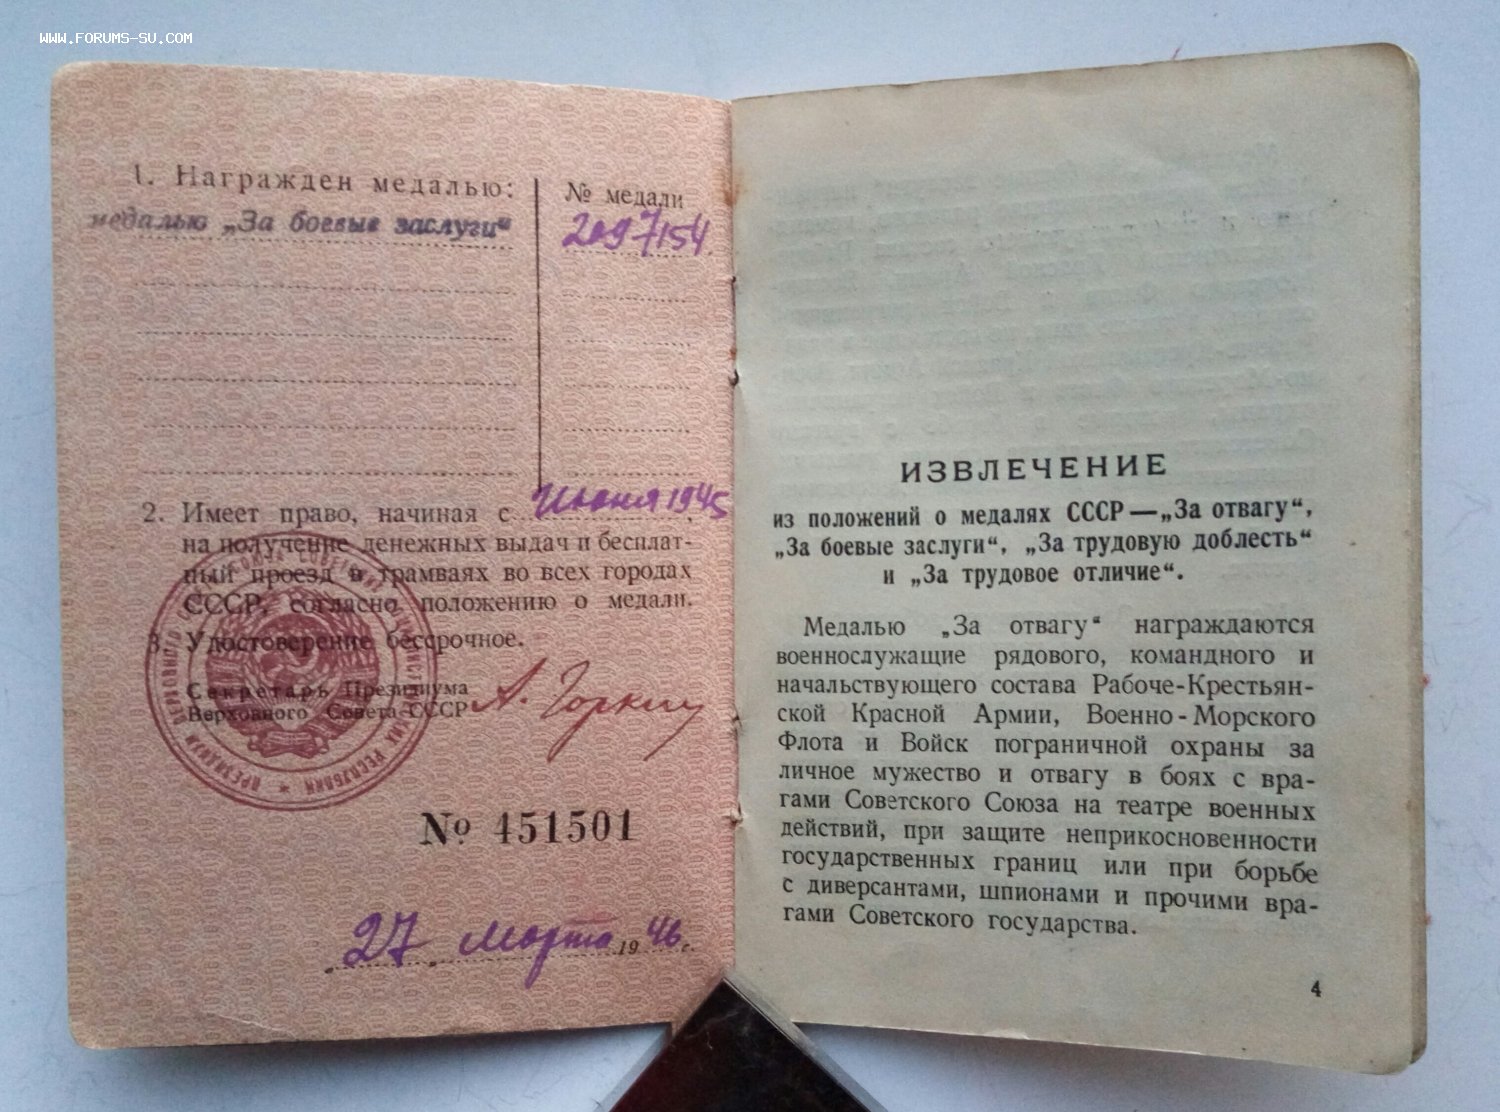 WWW.FORUMS-SU.COM
1. Награжден медалью:
№ медали
медалью „За боевые заслуги“
2097154
2. Имеет право, начиная с Июня 1945,
на получение денежных выдач и бесплат-
ный проезд в трамваях во всех городах
СССР, согласно положению о медали.
3. Удостоверение бессрочное.
Секретарь Президиума
Верховного Совета СССР
А. Горкин
№ 451501
„27“ Марта 1946 г.
ИЗВЛЕЧЕНИЕ
из положений о медалях СССР—„За отвагу“,
„За боевые заслуги“, „За трудовую доблесть“
и „За трудовое отличие“.
Медалью „За отвагу“ награждаются
военнослужащие рядового, командного и
начальствующего состава Рабоче-Крестьян-
ской Красной Армии, Военно-Морского
Флота и Войск пограничной охраны за
личное мужество и отвагу в боях с вра-
гами Советского Союза на театре военных
действий, при защите неприкосновенности
государственных границ или при борьбе
с диверсантами, шпионами и прочими вра-
гами Советского государства.
4